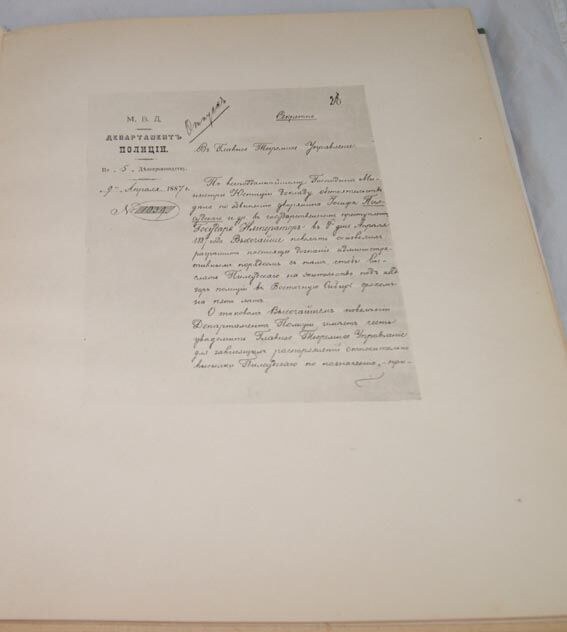 28
Отпускъ
Секретно
М. В. Д.
ДЕПАРТАМЕНТЪ
ПОЛИЦІИ.
По 5 Дѣлопроизводству.
9 Апрѣля 1887 г.
№ 1039
Въ Главное Тюремное Управленіе.
По всеподданнѣйшему Господина Ми-
нистра Юстиціи докладу обстоятельствъ
дѣла по обвиненію дворянина Іосифа Пил-
судскаго и др. въ государственномъ преступленіи
Государь Императоръ, въ день Апрѣля
1887 года Высочайше повелѣть соизволилъ
разрѣшить настоящее дознаніе администра-
тивнымъ порядкомъ съ тѣмъ, чтобы вы-
слать Пилсудскаго на жительство подъ над-
зоръ полиціи въ Восточную Сибирь срокомъ
на пять лѣтъ.
О таковомъ Высочайшемъ повелѣніи
Департаментъ Полиціи имѣетъ честь
увѣдомить Главное Тюремное Управленіе
для зависящихъ распоряженій относительно
высылки Пилсудскаго по назначенію, при-